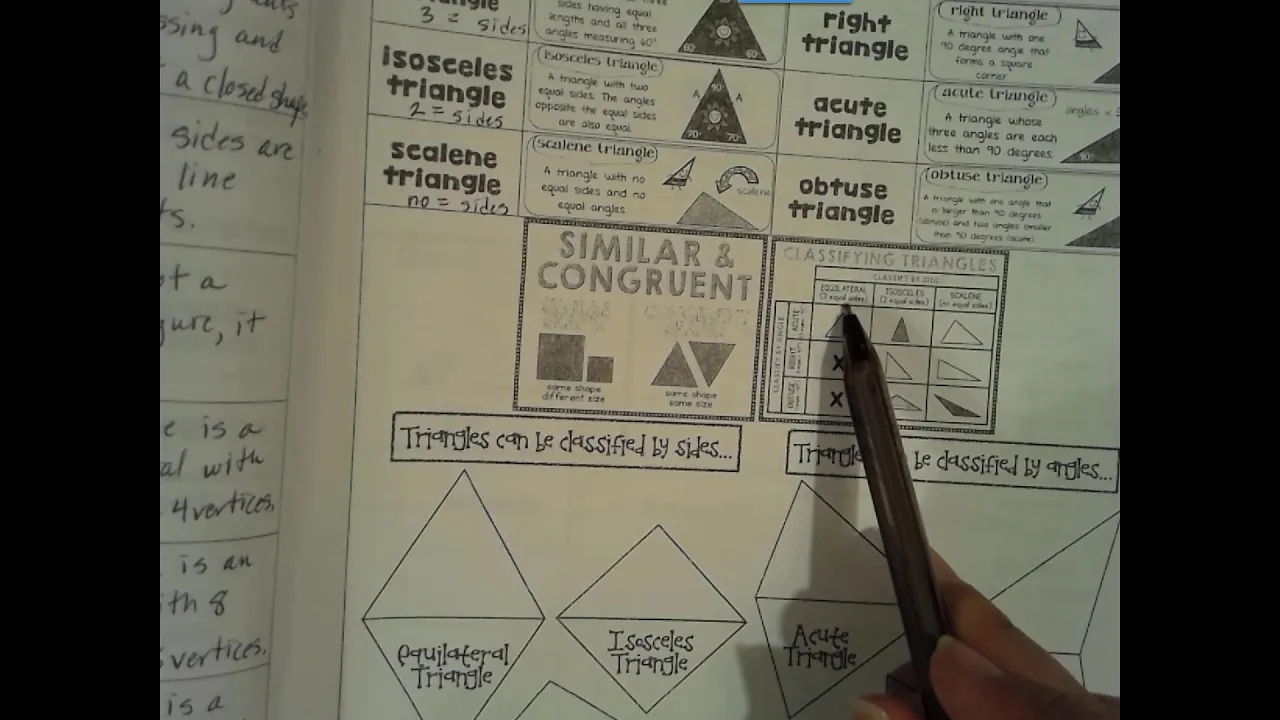 ssing and
a closed shape
sides are
line
s.
ot a
gure, it
e is a
al with
4 vertices.
is an
ith 8
vertices.
is a
3 = sides
sides having equal
lengths and all three
angles measuring 60°
60°
60°
right
triangle
right triangle
A triangle with one
90 degree angle that
forms a square
corner
isosceles
triangle
2 = sides
isosceles triangle
A triangle with two
equal sides. The angles
opposite the equal sides
are also equal.
A
A
40
70°
70°
acute
triangle
acute triangle
angles <
A triangle whose
three angles are each
less than 90 degrees.
scalene
triangle
no = sides
scalene triangle
A triangle with no
equal sides and no
equal angles.
scalene
obtuse
triangle
obtuse triangle
A triangle with one angle that
is larger than 90 degrees
(obtuse) and two angles smaller
than 90 degrees (acute)
SIMILAR &
CONGRUENT
same shape
different size
same shape
same size
CLASSIFYING TRIANGLES
CLASSIFY BY SIDE
EQUILATERAL
(3 equal sides)
ISOSCELES
(2 equal sides)
SCALENE
(no equal sides)
CLASSIFY BY ANGLE
ACUTE
RIGHT
X
OBTUSE
X
Triangles can be classified by sides...
Triangle be classified by angles...
Equilateral
Triangle
Isosceles
Triangle
Acute
Triangle